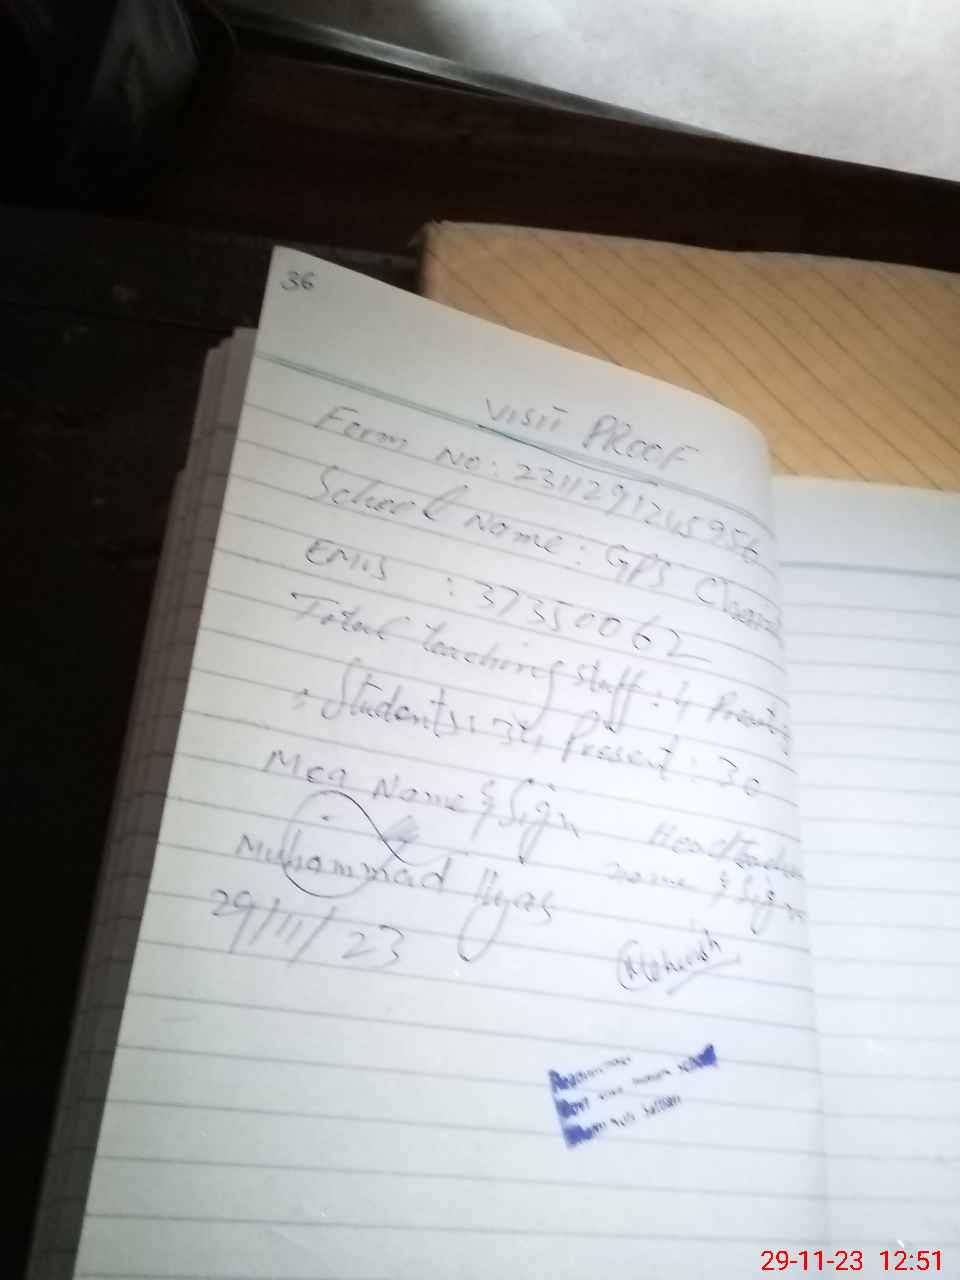 36
VISIT PROOF
Form No: 2311291245956
School Name: GPS
EMIS : 37350062
Total teaching staff: 4 Present:
: Students: 34, Present: 30
Mea Name & Sign
Headteacher
name & Sign
Muhammad Ilyas
29/11/23
Mehwish
29-11-23 12:51